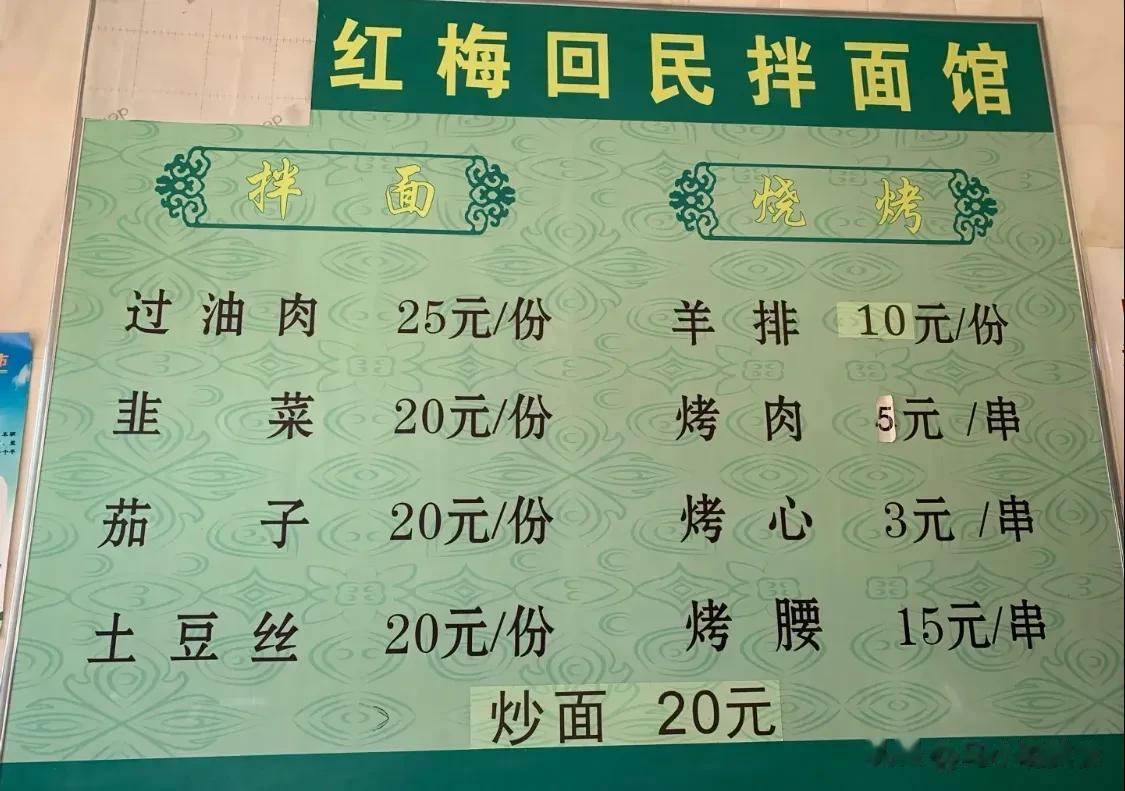 红梅回民拌面馆
拌面
过油肉 25元/份
韭菜 20元/份
茄子 20元/份
土豆丝 20元/份
烧烤
羊排 10元/份
烤肉 5元/串
烤心 3元/串
烤腰 15元/串
炒面 20元